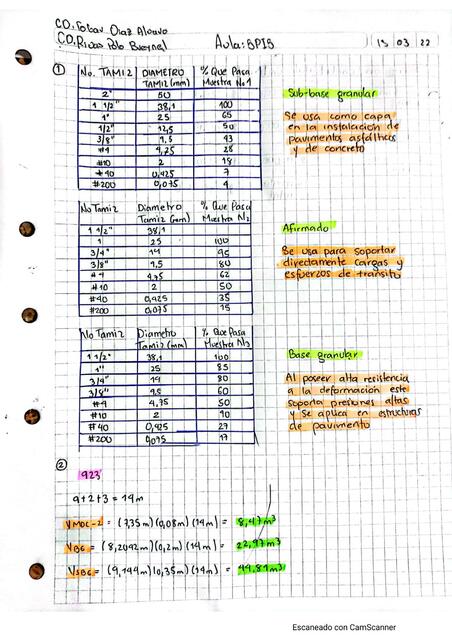 CO. Tobar Diaz Alonso
CO. Rivas Polo Breynel Aula: BP15 15 03 22
1
No. TAMIZ DIAMETRO TAMIZ (mm) % Que Pasa Muestra No 1
2" 50
1 1/2" 38,1 100
1" 25 65
1/2" 12,5 50
3/8" 9,5 43
#4 4,75 28
#10 2 18
#40 0,425 7
#200 0,075 4
Sub-base granular
Se usa como capa
en la instalación de
pavimentos asfálticos
y de concreto
No Tamiz Diametro Tamiz (mm) % Que Pasa Muestra N2
1 1/2" 38,1
1 25 100
3/4" 19 95
3/8" 9,5 80
#4 4,75 62
#10 2 50
#40 0,425 35
#200 0,075 15
Afirmado
Se usa para soportar
directamente cargas y
esfuerzos de tránsito
No Tamiz Diametro Tamiz (mm) % Que Pasa Muestra N3
1 1/2" 38,1 100
1" 25 85
3/4" 19 80
3/8" 9,5 60
#4 4,75 50
#10 2 40
#40 0,425 27
#200 0,075 17
Base granular
Al poseer alta resistencia
a la deformación este
soporta presiones altas
y se aplica en estructuras
de pavimento
2
923
9+2+3 = 14m
VMDC-2 = (7,35m)(0,08m)(14m) = 8,47m³
VBG = (8,2042m)(0,2m)(14m) = 22,97m³
VSBG = (9,144m)(0,35m)(14m) = 44,81m³
Escaneado con CamScanner